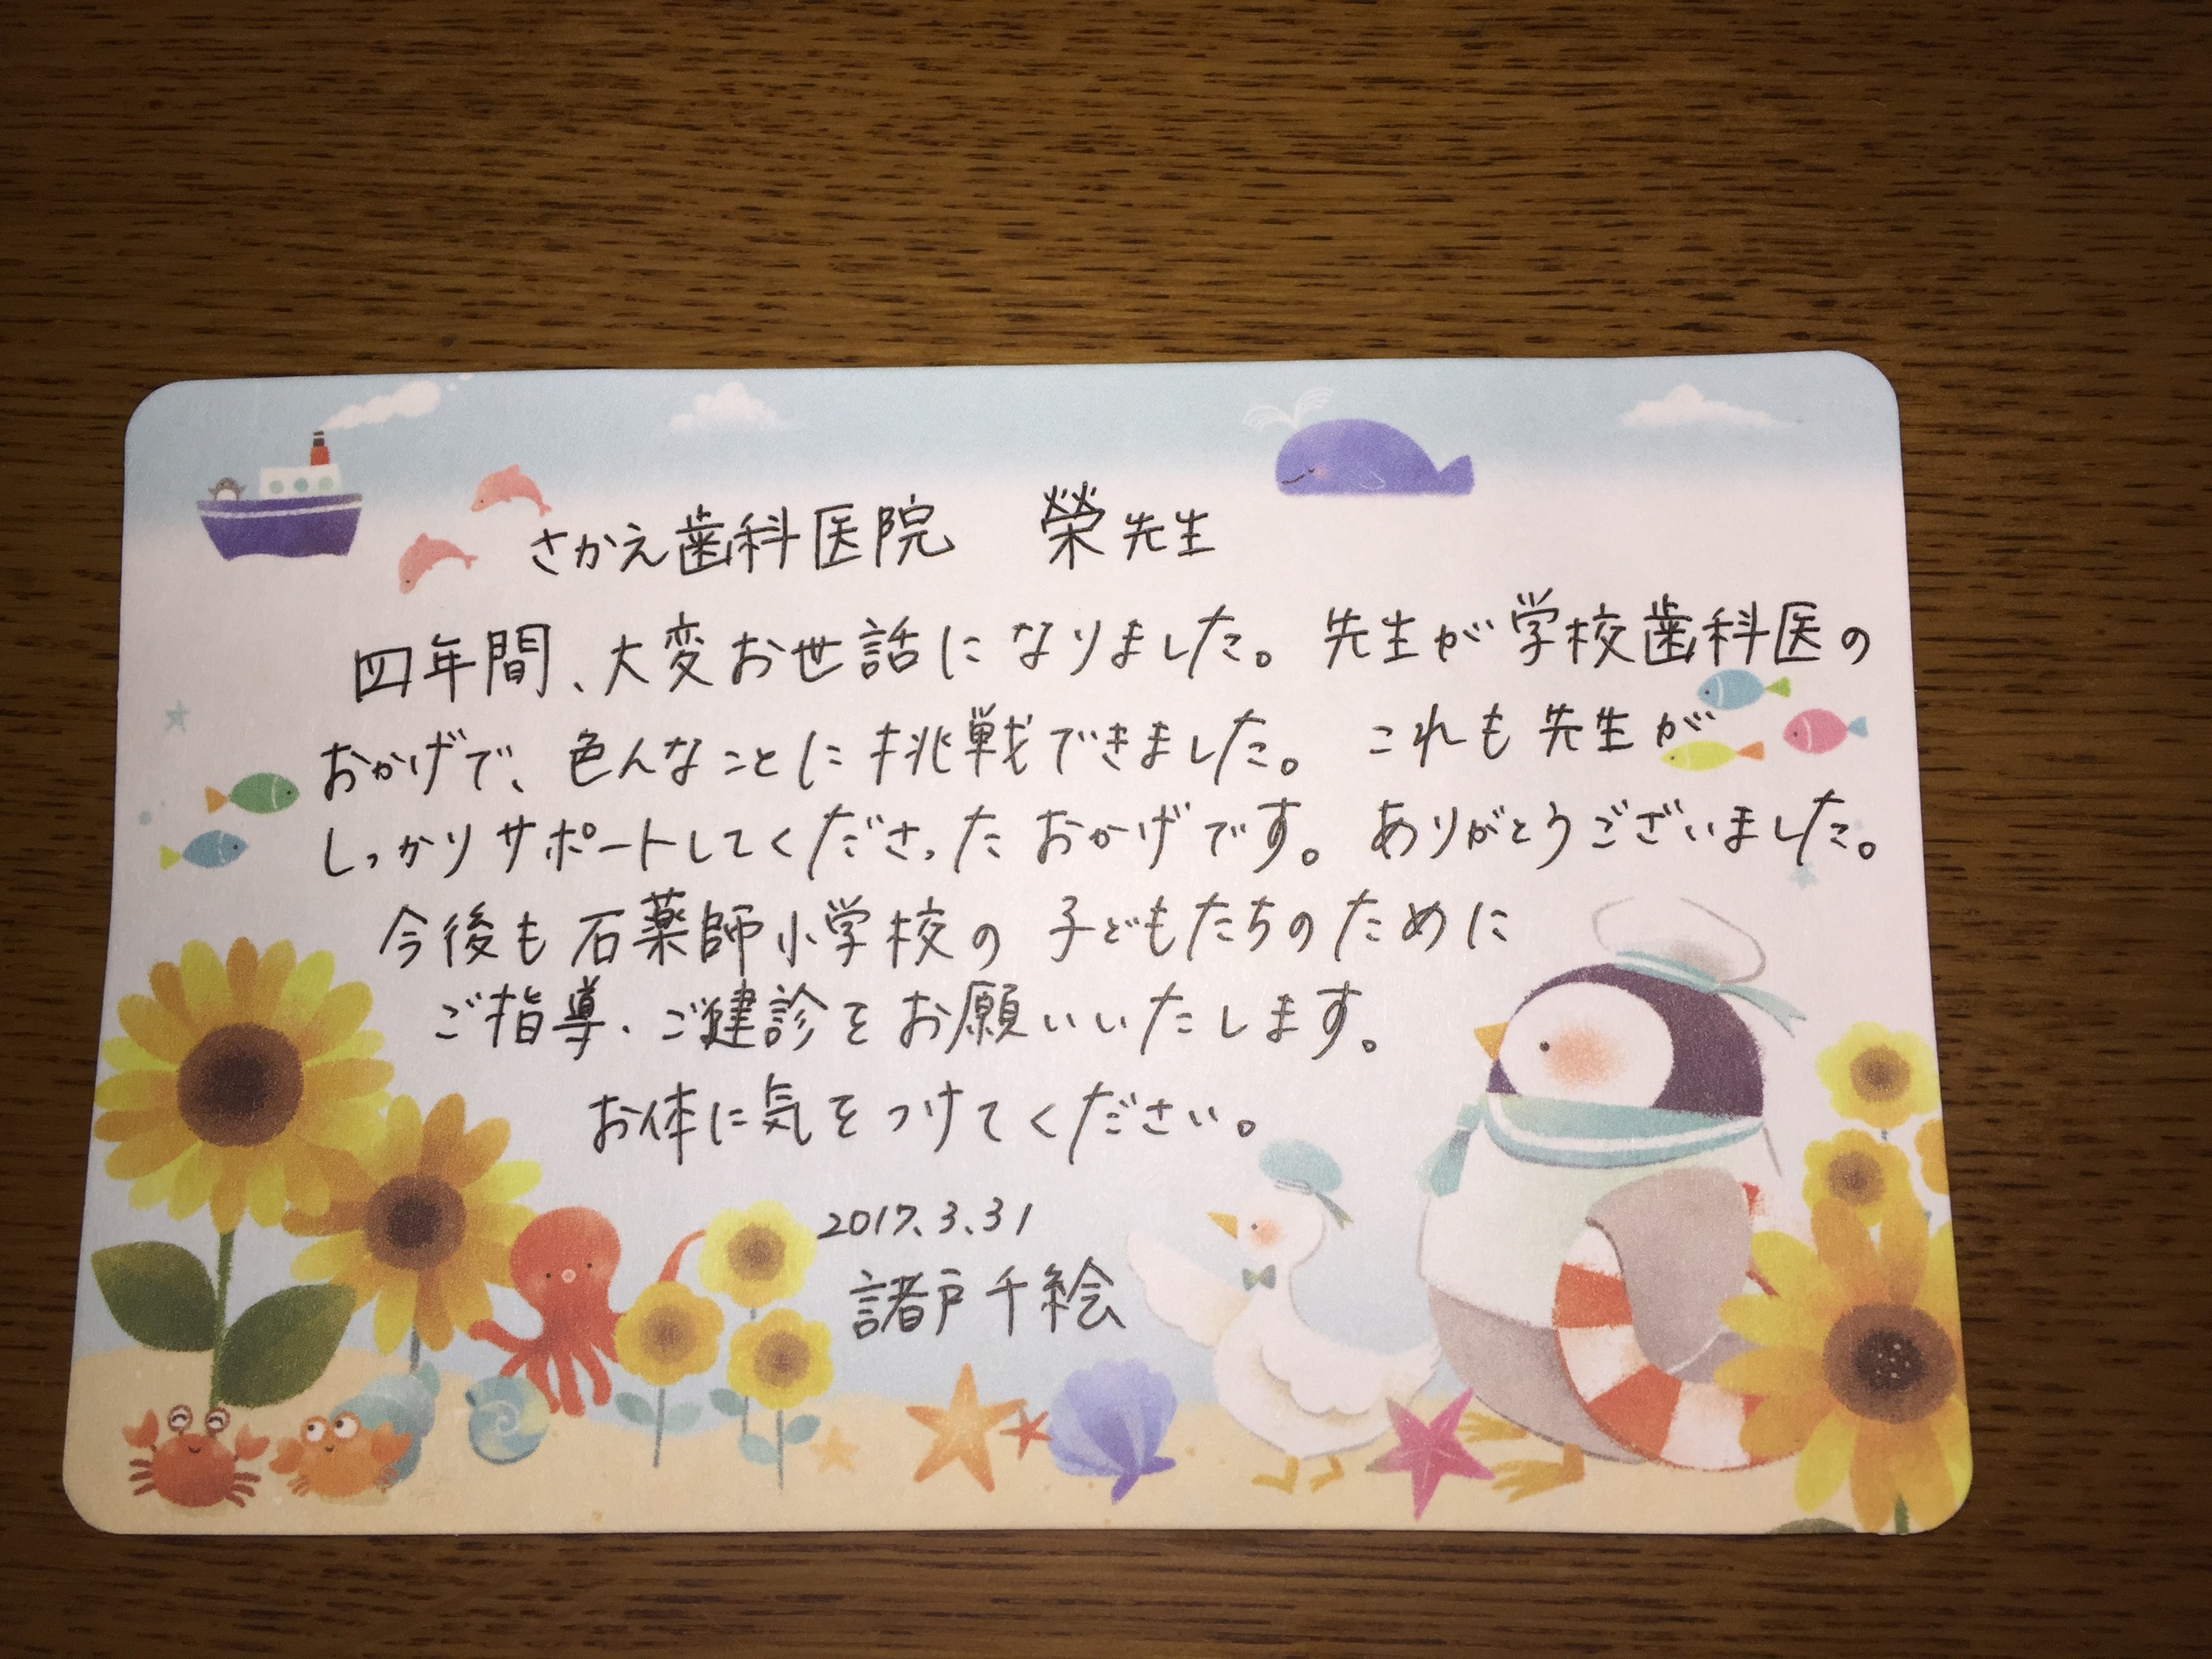 さかえ歯科医院　榮先生
四年間、大変お世話になりました。先生が学校歯科医の
おかげで、色んなことに挑戦できました。これも先生が
しっかりサポートしてくださったおかげです。ありがとうございました。
今後も石薬師小学校の子どもたちのために
ご指導・ご健診をお願いいたします。
お体に気をつけてください。
2017.3.31
諸戸千絵